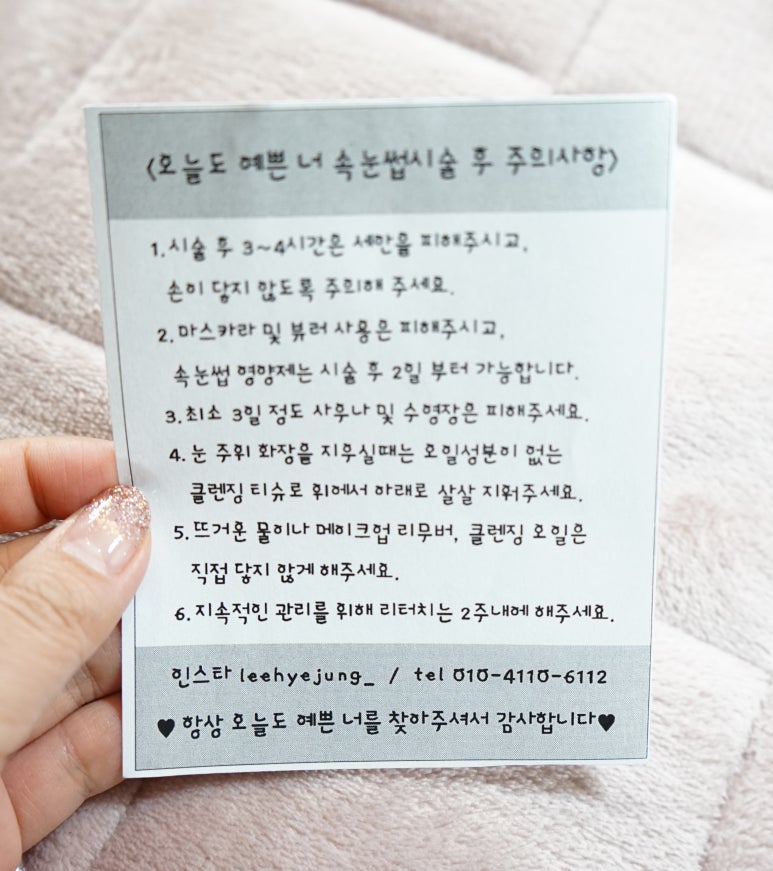 <오늘도 예쁜 너 속눈썹시술 후 주의사항>
1. 시술 후 3~4시간은 세안을 피해주시고,
손이 닿지 않도록 주의해 주세요.
2. 마스카라 및 뷰러 사용은 피해주시고,
속눈썹 영양제는 시술 후 2일 부터 가능합니다.
3. 최소 3일 정도 사우나 및 수영장은 피해주세요.
4. 눈 주위 화장을 지우실때는 오일성분이 없는
클렌징 티슈로 위에서 아래로 살살 지워주세요.
5. 뜨거운 물이나 메이크업 리무버, 클렌징 오일은
직접 닿지 않게 해주세요.
6. 지속적인 관리를 위해 리터치는 2주내에 해주세요.
인스타 leehyejung_ / tel 010-4110-6112
♥ 항상 오늘도 예쁜 너를 찾아주셔서 감사합니다♥